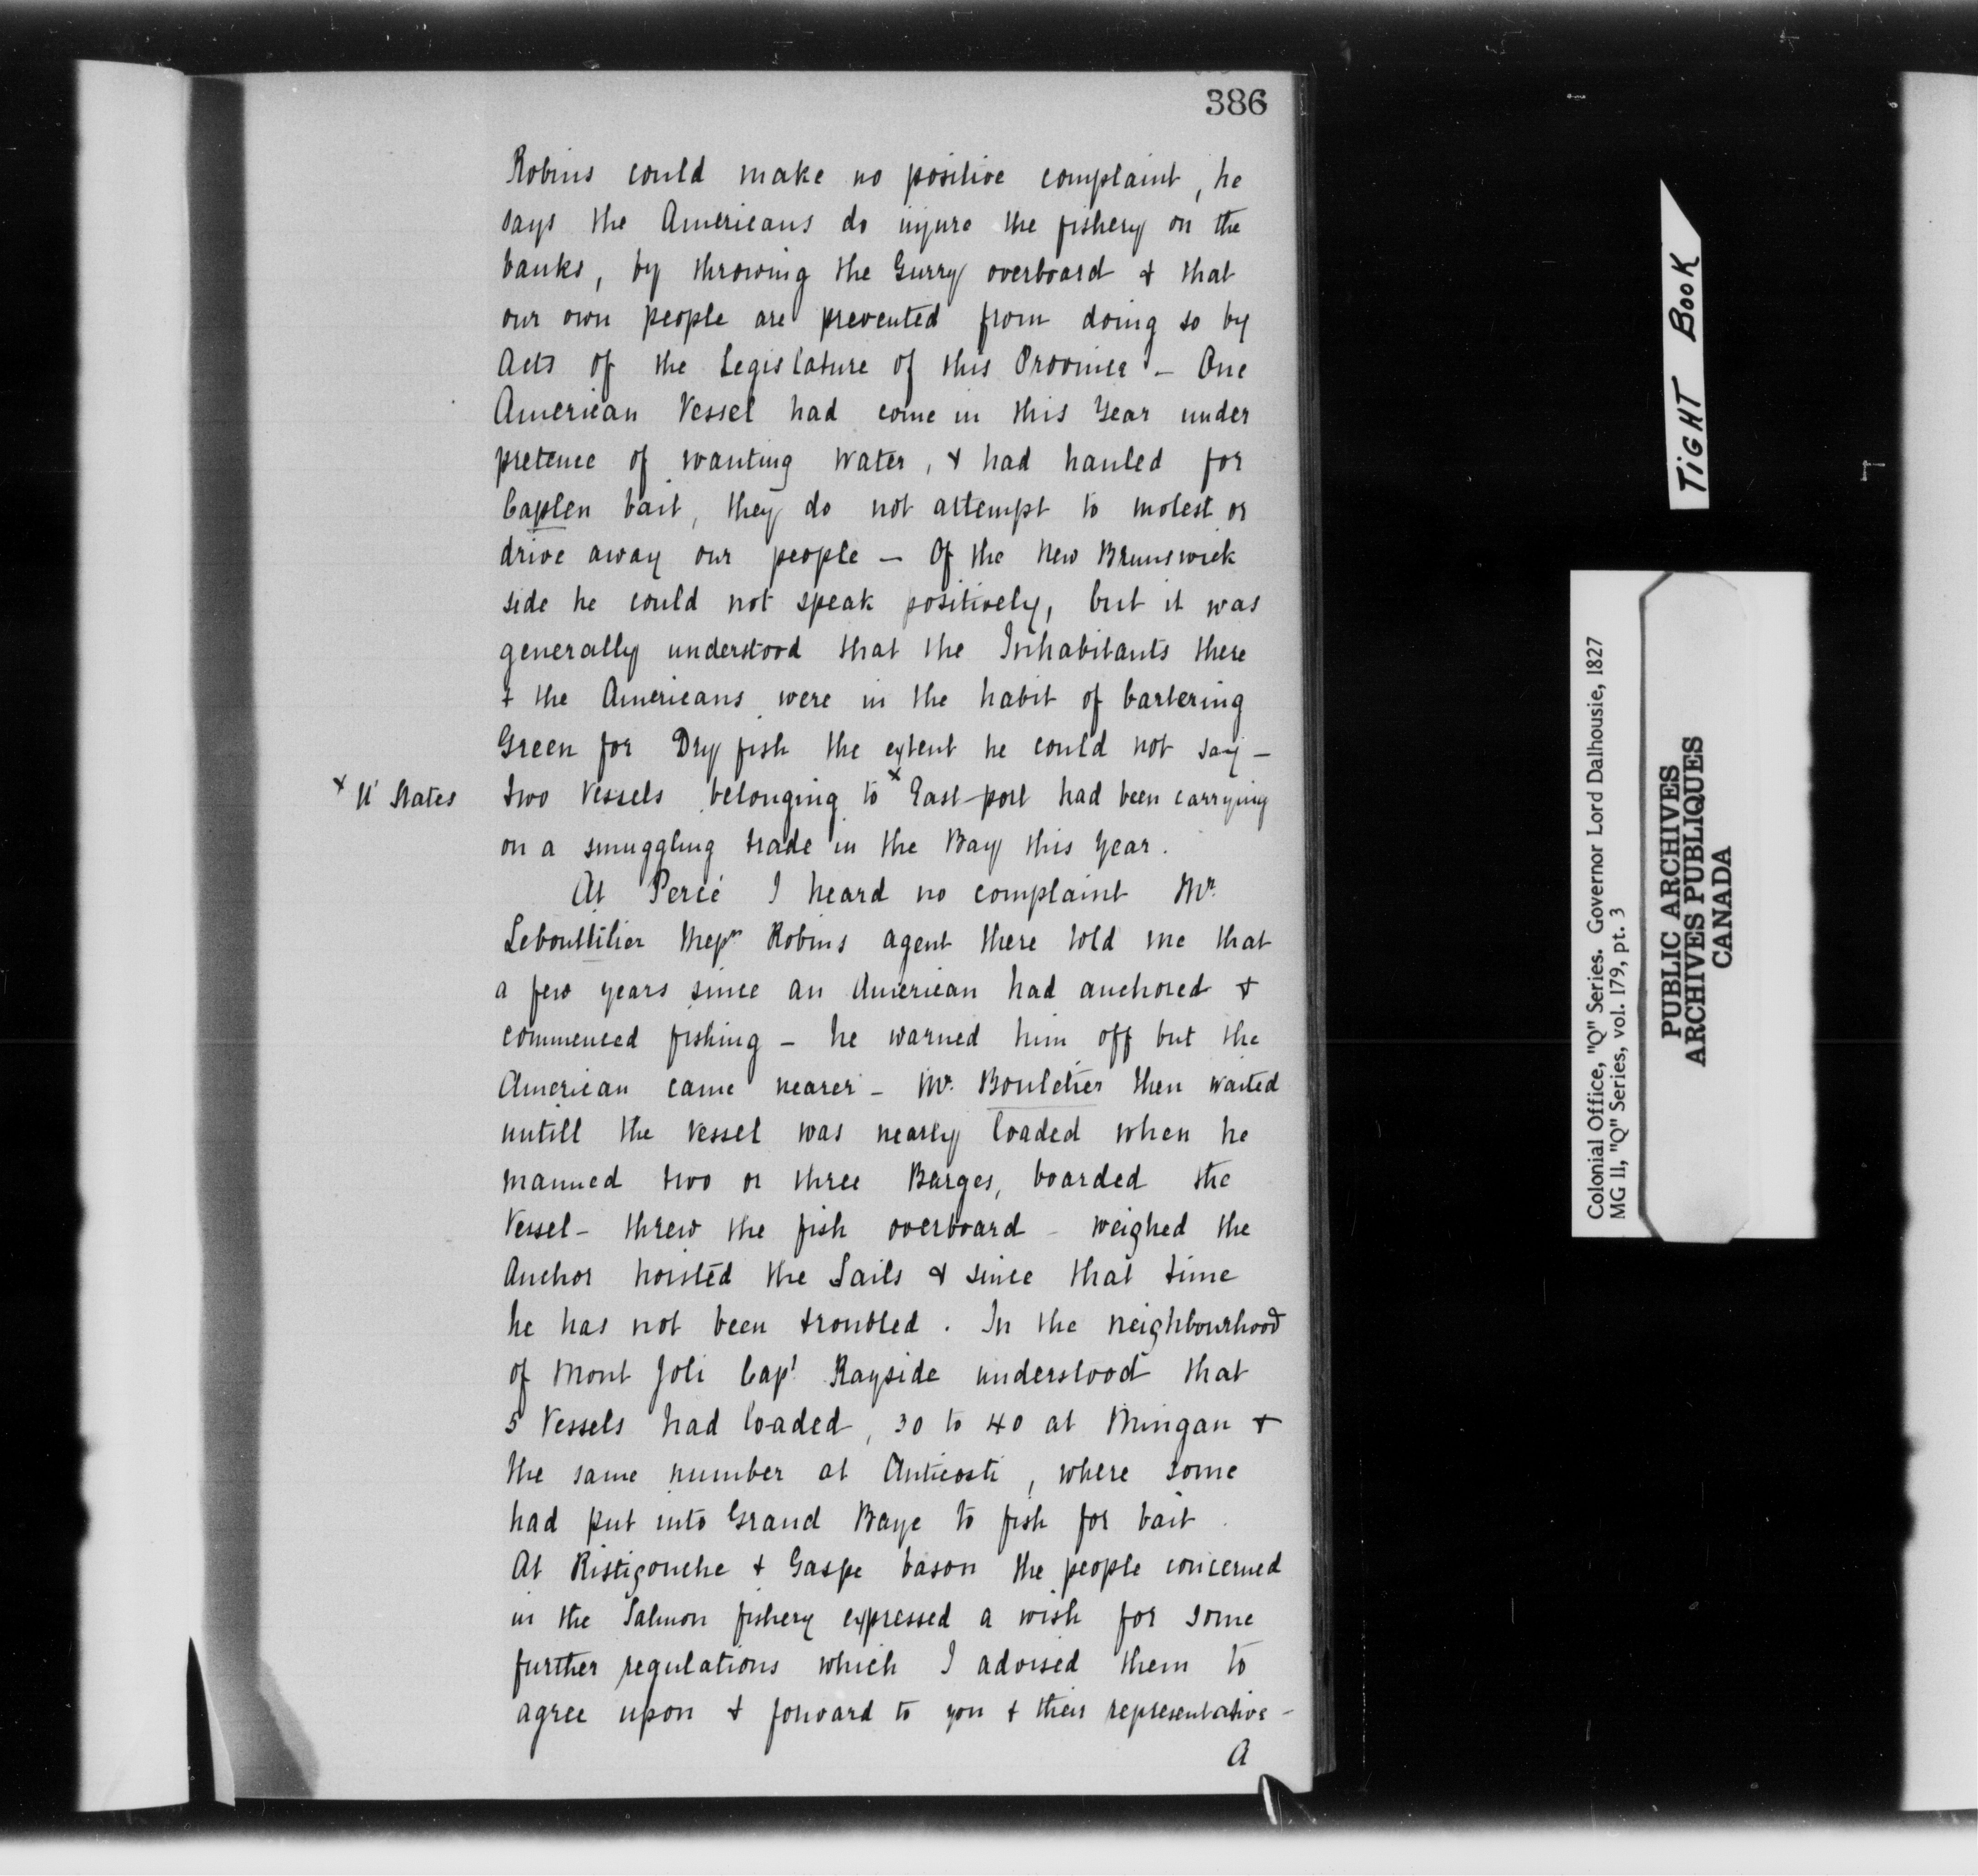 386
Robins could make no positive complaint, he
says the Americans do injure the fishery on the
banks, by throwing the Gurry overboard & that
our own people are prevented from doing so by
Acts of the Legislature of this Province - One
American Vessel had come in this Year under
pretence of wanting Water, & had hauled for
Caplen bait, they do not attempt to molest or
drive away our people - Of the New Brunswick
side he could not speak positively, but it was
generally understood that the Inhabitants there
& the Americans were in the habit of bartering
Green for Dry fish the extent he could not say -
x U' States
two Vessels belonging to x East-port had been carrying
on a smuggling trade in the Bay this year.
At Percé I heard no complaint Mr.
Leboutilier Messrs Robins agent there told me that
a few years since an American had anchored &
commenced fishing - he warned him off but the
American came nearer - Mr. Bouletier then waited
untill the vessel was nearly loaded when he
manned two or three Barges, boarded the
Vessel - threw the fish overboard - weighed the
Anchor hoisted the Sails & since that time
he has not been troubled. In the neighbourhood
of Mont Joli Capt. Rayside understood that
5 Vessels had loaded, 30 to 40 at Mingan &
the same number at Anticosti, where some
had put into Grand Baye to fish for bait.
At Ristigouche & Gaspe bason the people concerned
in the Salmon fishery expressed a wish for some
further regulations which I advised them to
agree upon & forward to you & their representative -
A
TIGHT BOOK
Colonial Office, "Q" Series. Governor Lord Dalhousie, 1827
MG 11, "Q" Series, vol. 179, pt. 3
PUBLIC ARCHIVES
ARCHIVES PUBLIQUES
CANADA